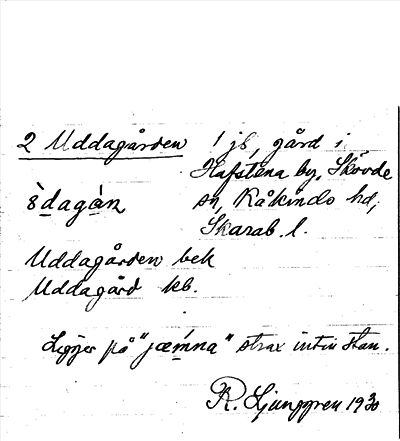 2 Uddagården 1 jb, gård i
Hafstena by, Skövde
ŏ̀dagàn sn, Kåkinds hd,
Skarab. l.
Uddagården bek
Uddagård kb.
Ligger på "jæmna" strax intill stan.
R. Ljunggren 1930